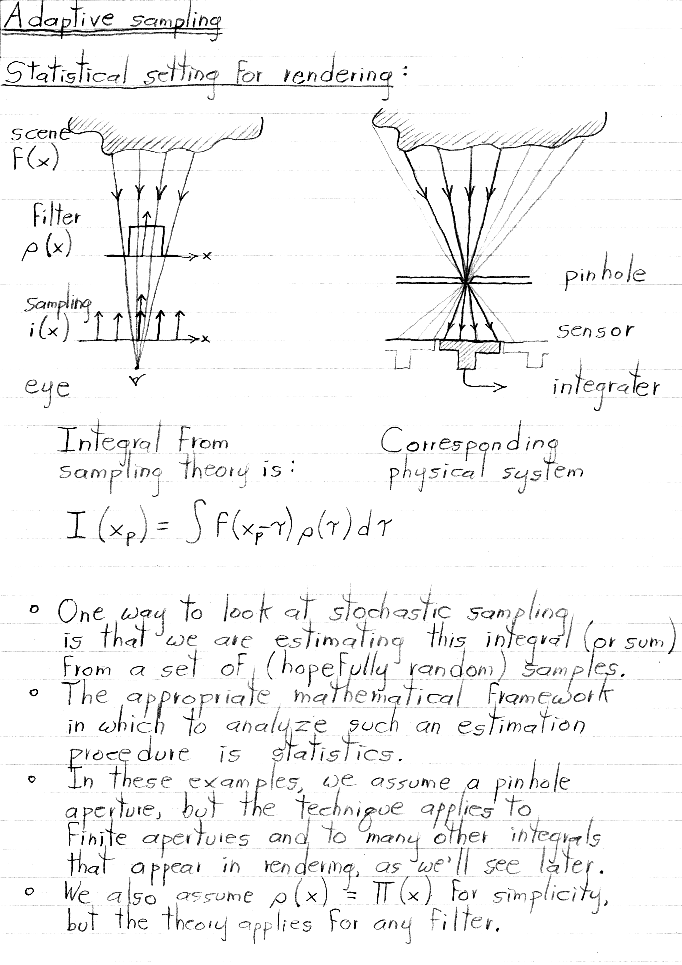 Adaptive sampling
Statistical setting for rendering:
scene
f(x)
filter
ρ(x)
x
sampling
i(x)
x
eye
pinhole
sensor
integrater
Integral from
sampling theory is:
Corresponding
physical system
I(xₚ) = ∫ f(xₚ-τ) ρ(τ) dτ
◦ One way to look at stochastic sampling
is that we are estimating this integral (or sum)
from a set of (hopefully random) samples.
◦ The appropriate mathematical framework
in which to analyze such an estimation
procedure is statistics.
◦ In these examples, we assume a pinhole
aperture, but the technique applies to
finite apertures and to many other integrals
that appear in rendering, as we'll see later.
◦ We also assume ρ(x) = Π(x) for simplicity,
but the theory applies for any filter.